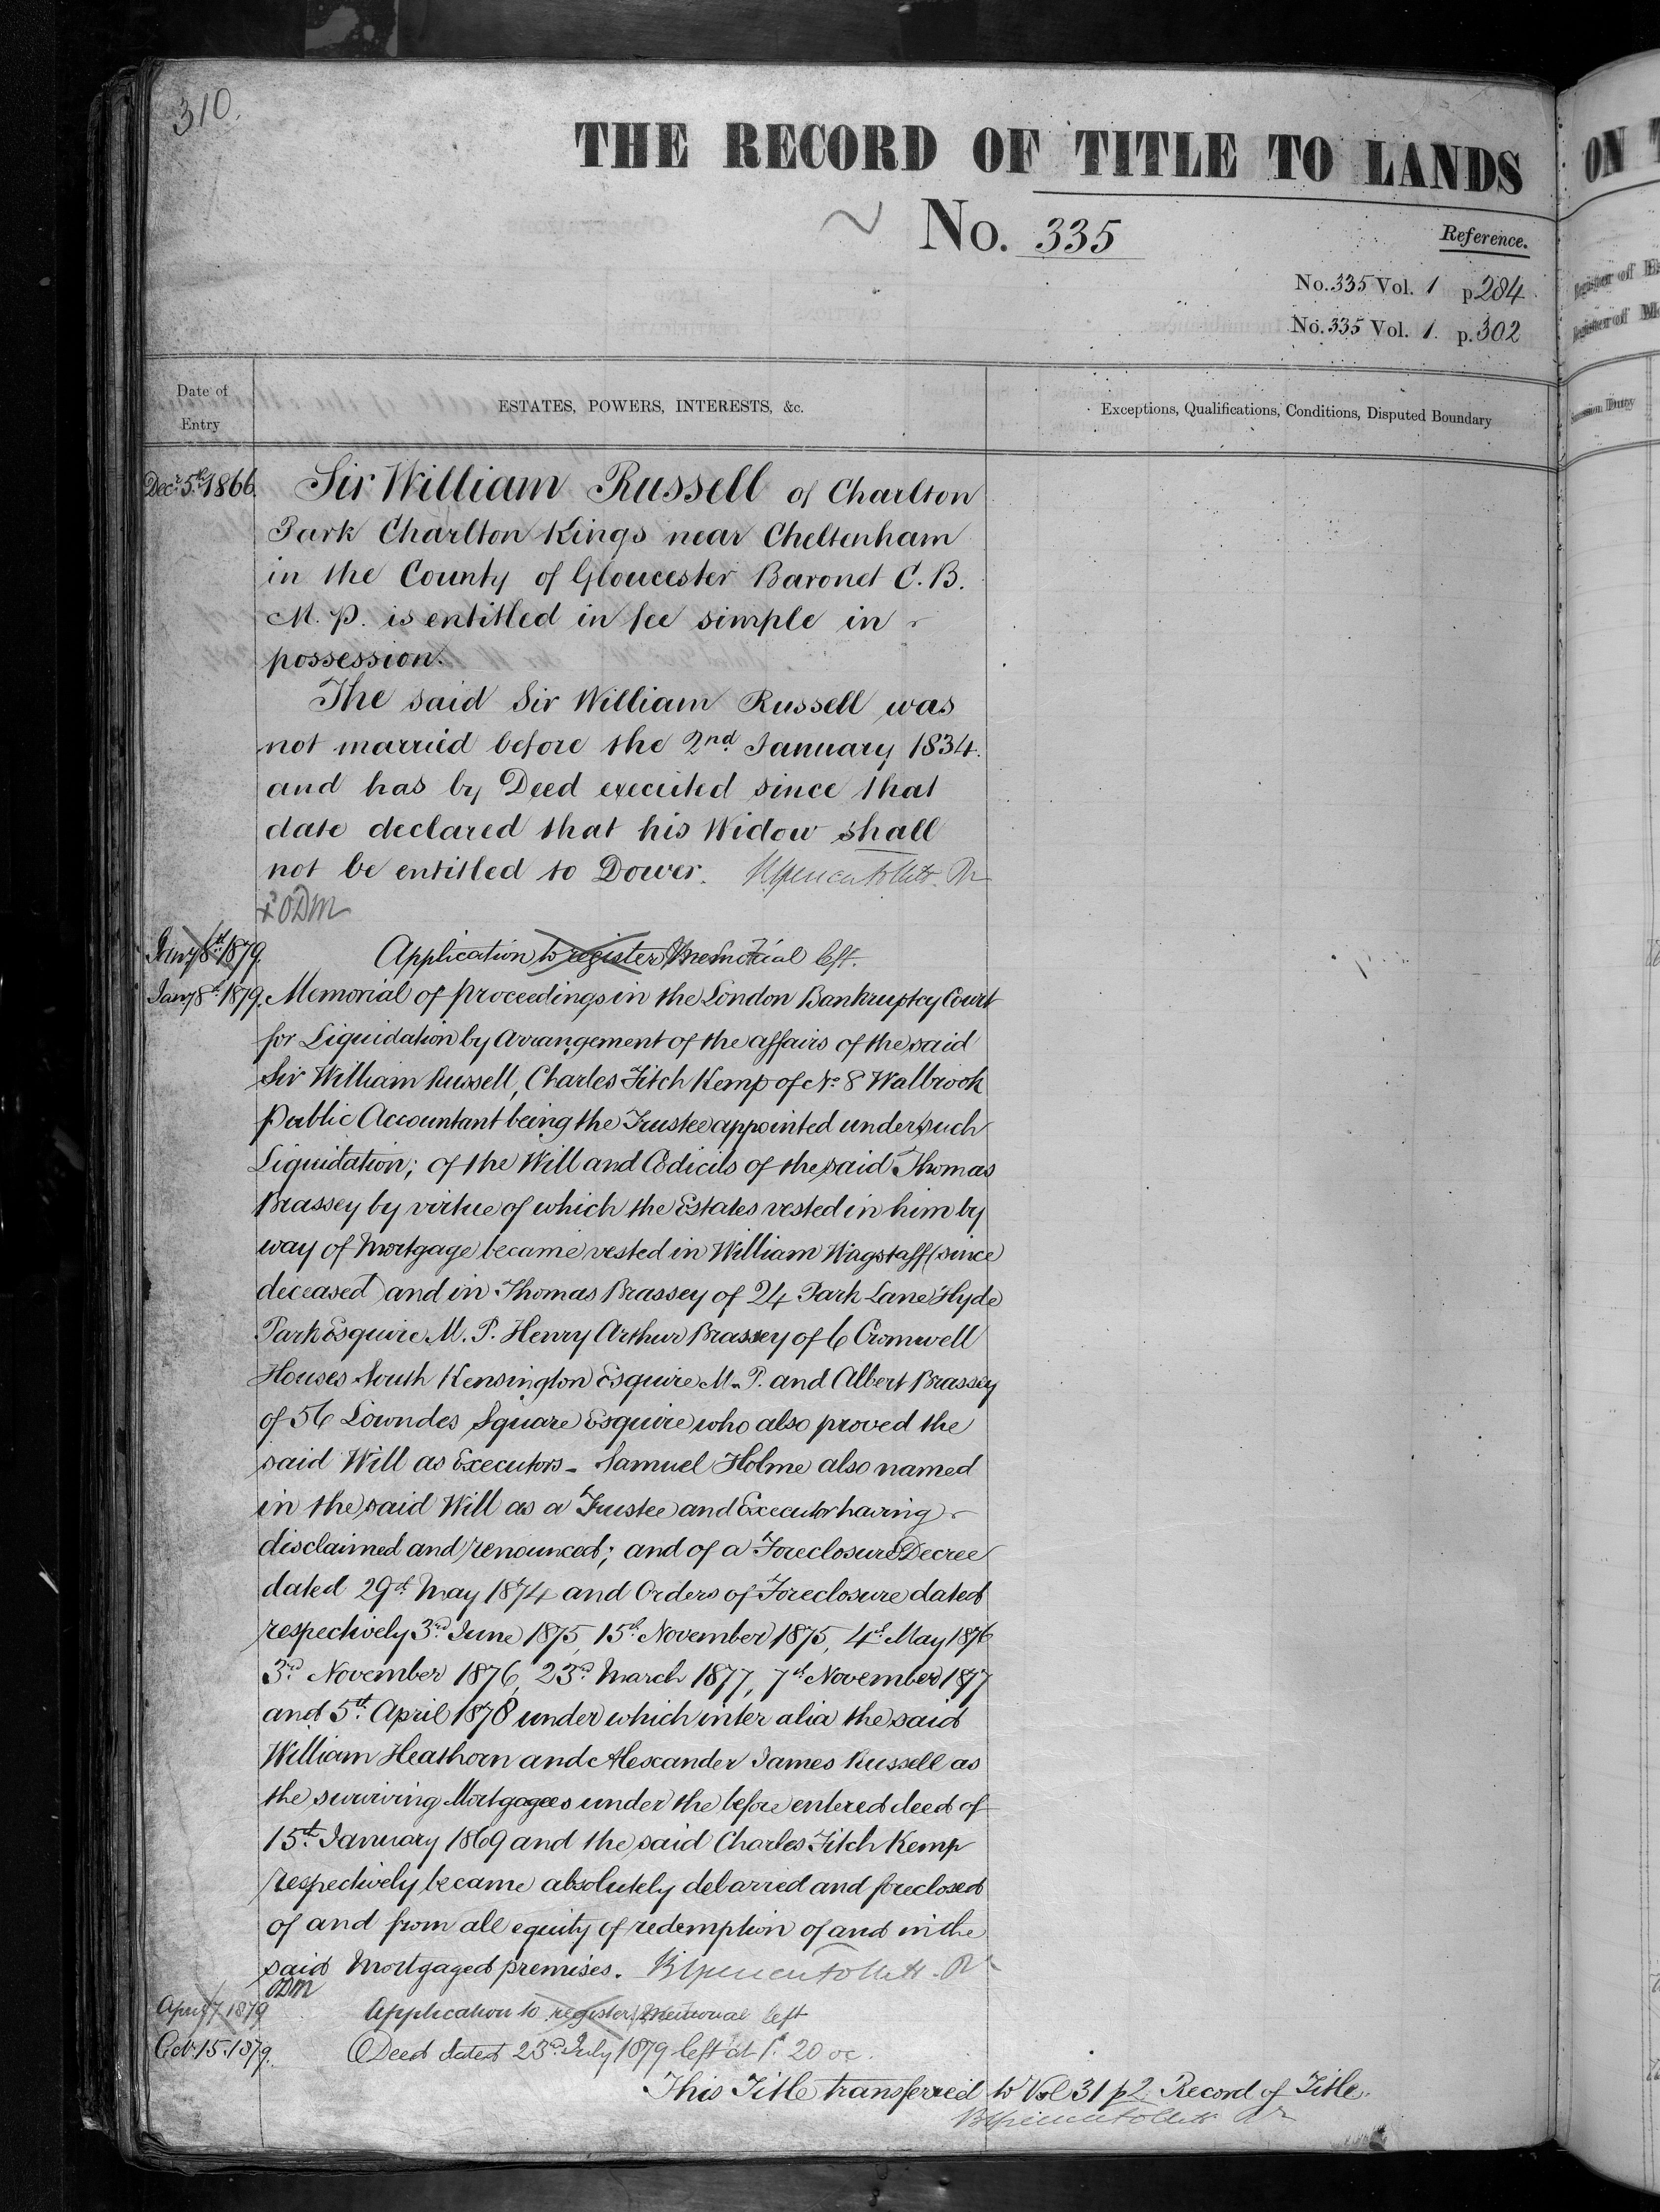 310.
THE RECORD OF TITLE TO LANDS
No. 335
Reference.
No. 335 Vol. 1 p 284
No. 335 Vol. 1. p. 302
Date of Entry
ESTATES, POWERS, INTERESTS, &c.
Exceptions, Qualifications, Conditions, Disputed Boundary
Decr. 5th 1866. Sir William Russell of Charlton
Park Charlton Kings near Cheltenham
in the County of Gloucester Baronet C. B.
M. P. is entitled in fee simple in
possession.
The said Sir William Russell was
not married before the 2nd January 1834.
and has by Deed executed since that
date declared that his Widow shall
not be entitled to Dower.
ODM
Jany 8th 1879. Application to register Memorial left.
Jany 8th 1879. Memorial of proceedings in the London Bankruptcy Court
for Liquidation by Arrangement of the affairs of the said
Sir William Russell, Charles Fitch Kemp of No 8 Walbrook
Public Accountant being the Trustee appointed under such
Liquidation; of the Will and Codicils of the said Thomas
Brassey by virtue of which the Estates vested in him by
way of Mortgage became vested in William Wagstaff (since
deceased) and in Thomas Brassey of 24 Park Lane Hyde
Park Esquire M. P. Henry Arthur Brassey of 6 Cromwell
Houses South Kensington Esquire M. P. and Albert Brassey
of 56 Lowndes Square Esquire who also proved the
said Will as Executors - Samuel Holme also named
in the said Will as a Trustee and Executor having
disclaimed and renounced; and of a Foreclosure Decree
dated 29th May 1874 and Orders of Foreclosure dated
respectively 3rd June 1875, 15th November 1875, 4th May 1876
3rd November 1876, 23rd March 1877, 7th November 1877
and 5th April 1878 under which inter alia the said
William Heathorn and Alexander James Russell as
the surviving Mortgagees under the before entered deed of
15th January 1869 and the said Charles Fitch Kemp
respectively became absolutely debarred and foreclosed
of and from all equity of redemption of and in the
said Mortgaged premises.
ODM
April 7 1879 Application to register Memorial left
Oct. 15. 1879. Deed dated 23rd July 1879 left at 1. 20 oc.
This Title transferred to Vol 31 p 2 Record of Title.
ON